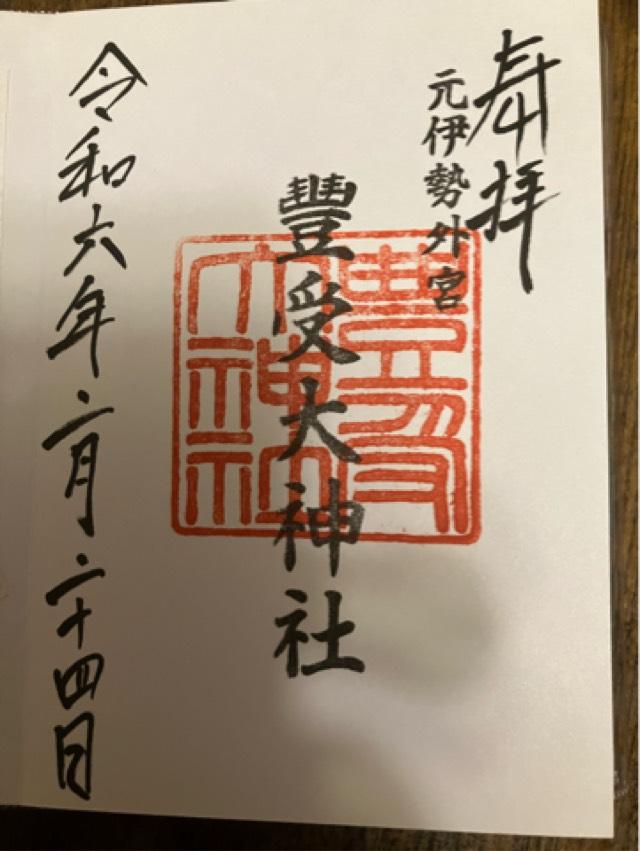 奉拝
元伊勢外宮
豐受大神社
豊受
大神社
令和六年二月二十四日